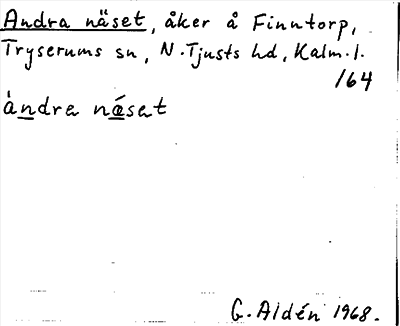 Andra näset, åker å Finntorp,
Tryserums sn, N. Tjusts hd, Kalm. l.
164
àndra nǽsat
G. Aldén 1968.